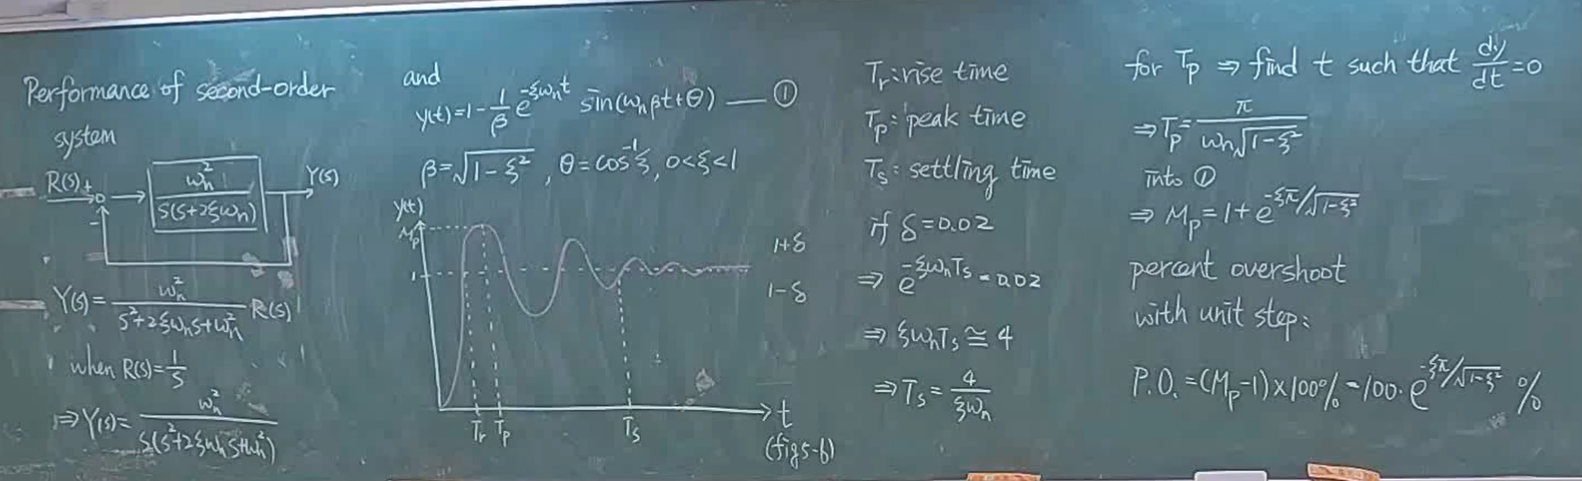 Performance of second-order
system
R(s) + ωn² / s(s+2ξωn) Y(s)
−
Y(s) = ωn² / s²+2ξωn s+ωn² R(s)
when R(s) = 1/s
⇒ Y(s) = ωn² / s(s²+2ξωn s+ωn²)
and
y(t) = 1 − 1/β e^(−ξωn t) sin(ωn βt+θ) — ①
β = √(1−ξ²), θ = cos⁻¹ξ, 0<ξ<1
y(t)
Mp
1
1+δ
1−δ
Tr Tp Ts t
(fig 5-6)
Tr: rise time
Tp: peak time
Ts: settling time
if δ = 0.02
⇒ e^(−ξωn Ts) = 0.02
⇒ ξωn Ts ≅ 4
⇒ Ts = 4 / ξωn
for Tp ⇒ find t such that dy/dt = 0
⇒ Tp = π / ωn√(1−ξ²)
into ①
⇒ Mp = 1 + e^(−ξπ/√(1−ξ²))
percent overshoot
with unit step:
P.O. = (Mp−1)×100% = 100·e^(−ξπ/√(1−ξ²)) %